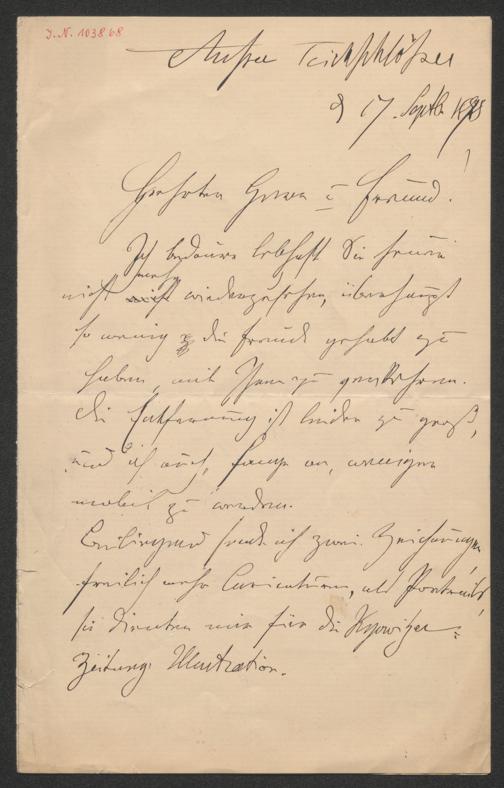 I.N. 103868
Aussee
17. Septb. 1898
Geehrter Herr u Freund.
Ich bedaure lebhaft Sie heuer
nicht mehr wiederzusehen, überhaupt
so wenig die Freude gehabt zu
haben, mit Ihnen zu verkehren.
Die Entfernung ist leider zu groß,
und ich auch, fange an, weniger
mobil zu werden.
Beiliegend sende ich zwei Zeichnungen
freilich mehr Caricaturen, als Portraits,
sie dienten mir für die
Zeitung: Illustration.